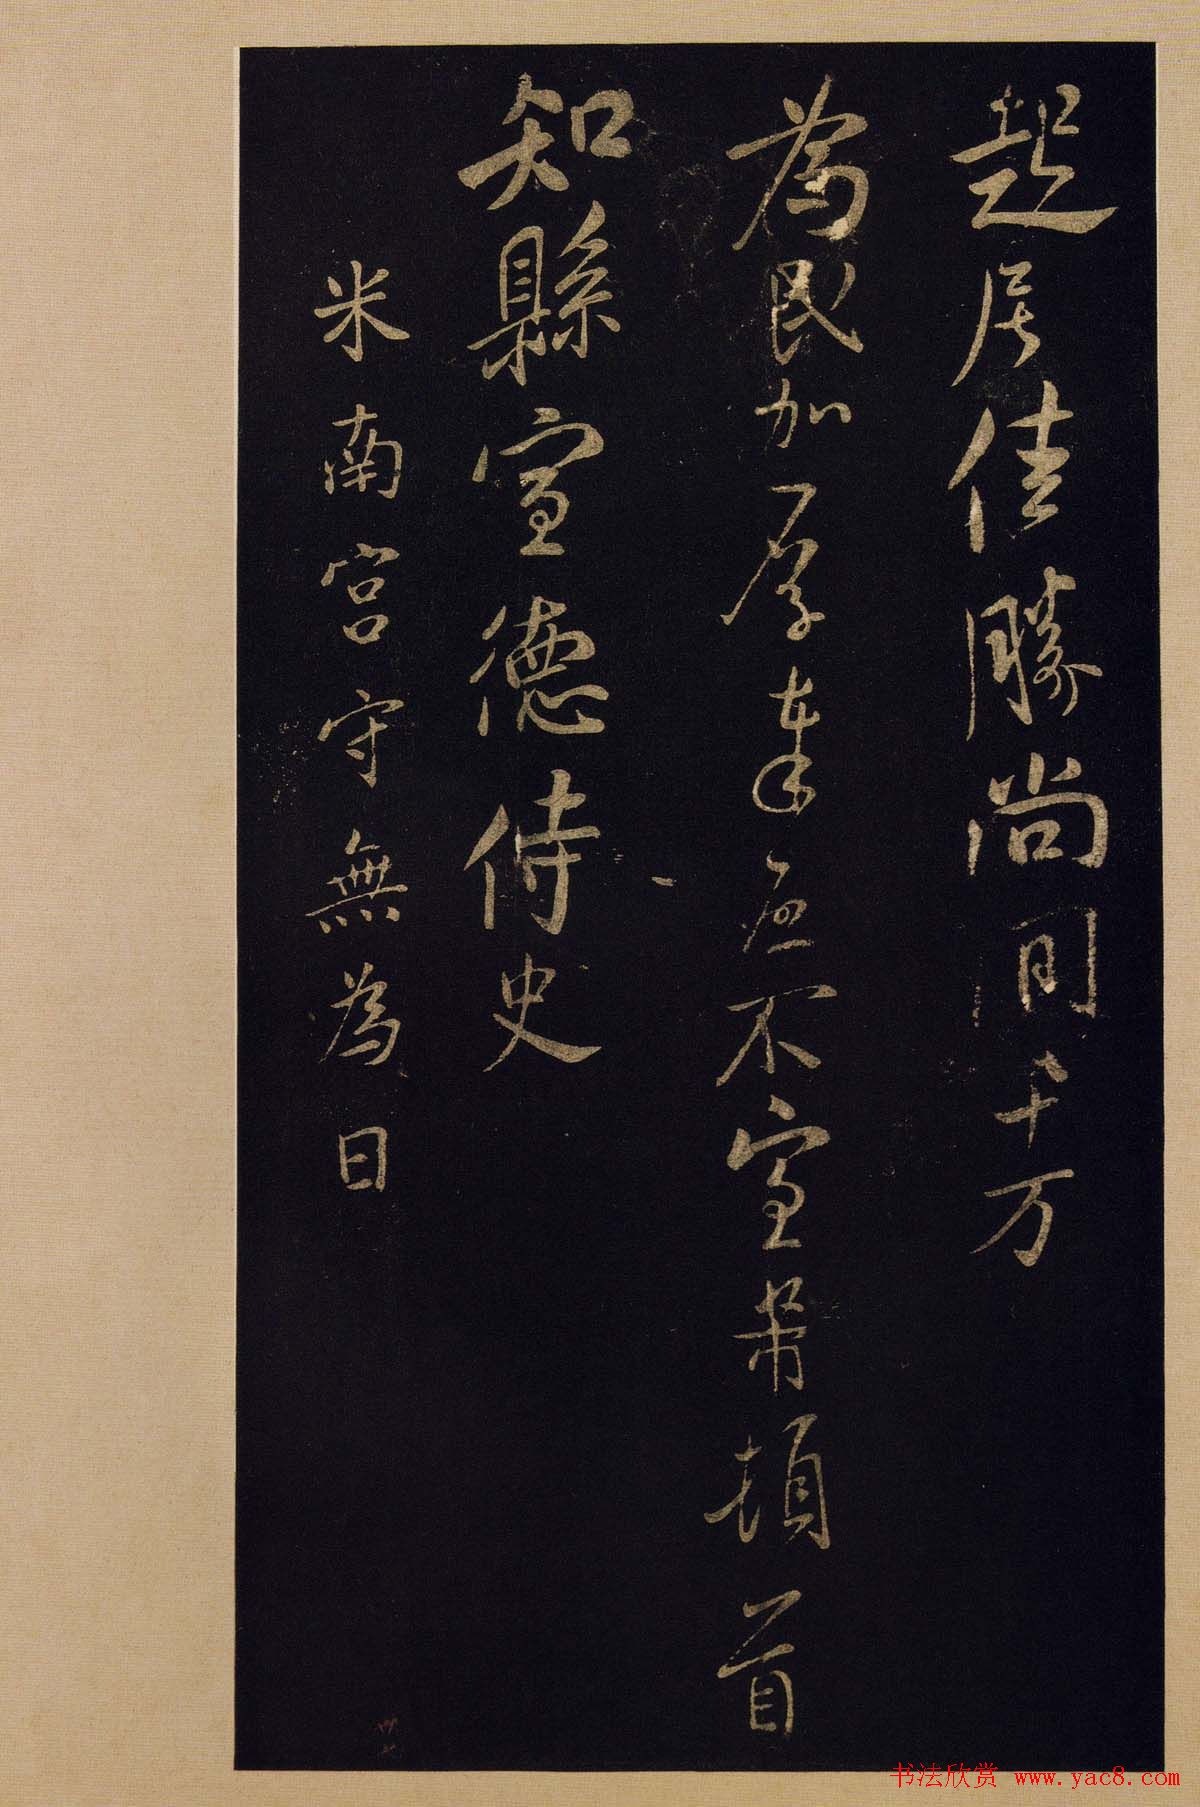 起居佳勝尚間千万
為民加厚不宣芾頓首
知縣宣德侍史
米南宮守無為日
书法欣赏 www.yac8.com